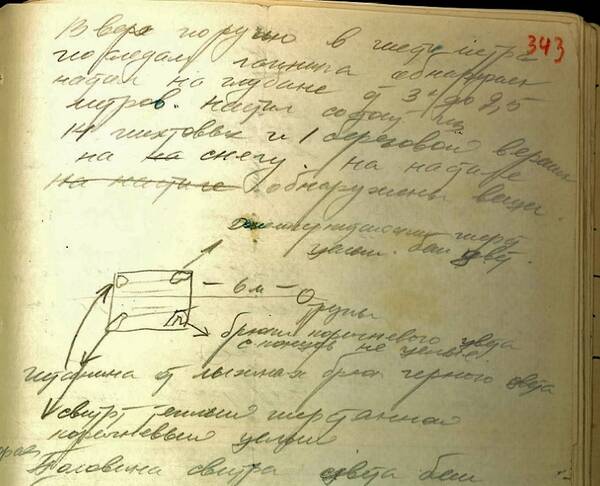 343
Вверх по ручью в шести метрах
по следам обнаружен
настил на глубине от 3 х до 2,5
метров. настил состоит из
14 пихтовых и 1 березовой вершин
на на снегу. на настиле
на настиле обнаружены вещи.
шерст
целый. беж цвет.
— 6 м —
трупы
брюки коричневого цвета
с концов не целые.
штанина от лыжных брюк черного цвета
свитр теплый шерстянной
коричневый целый
Половина свитра цвета беж